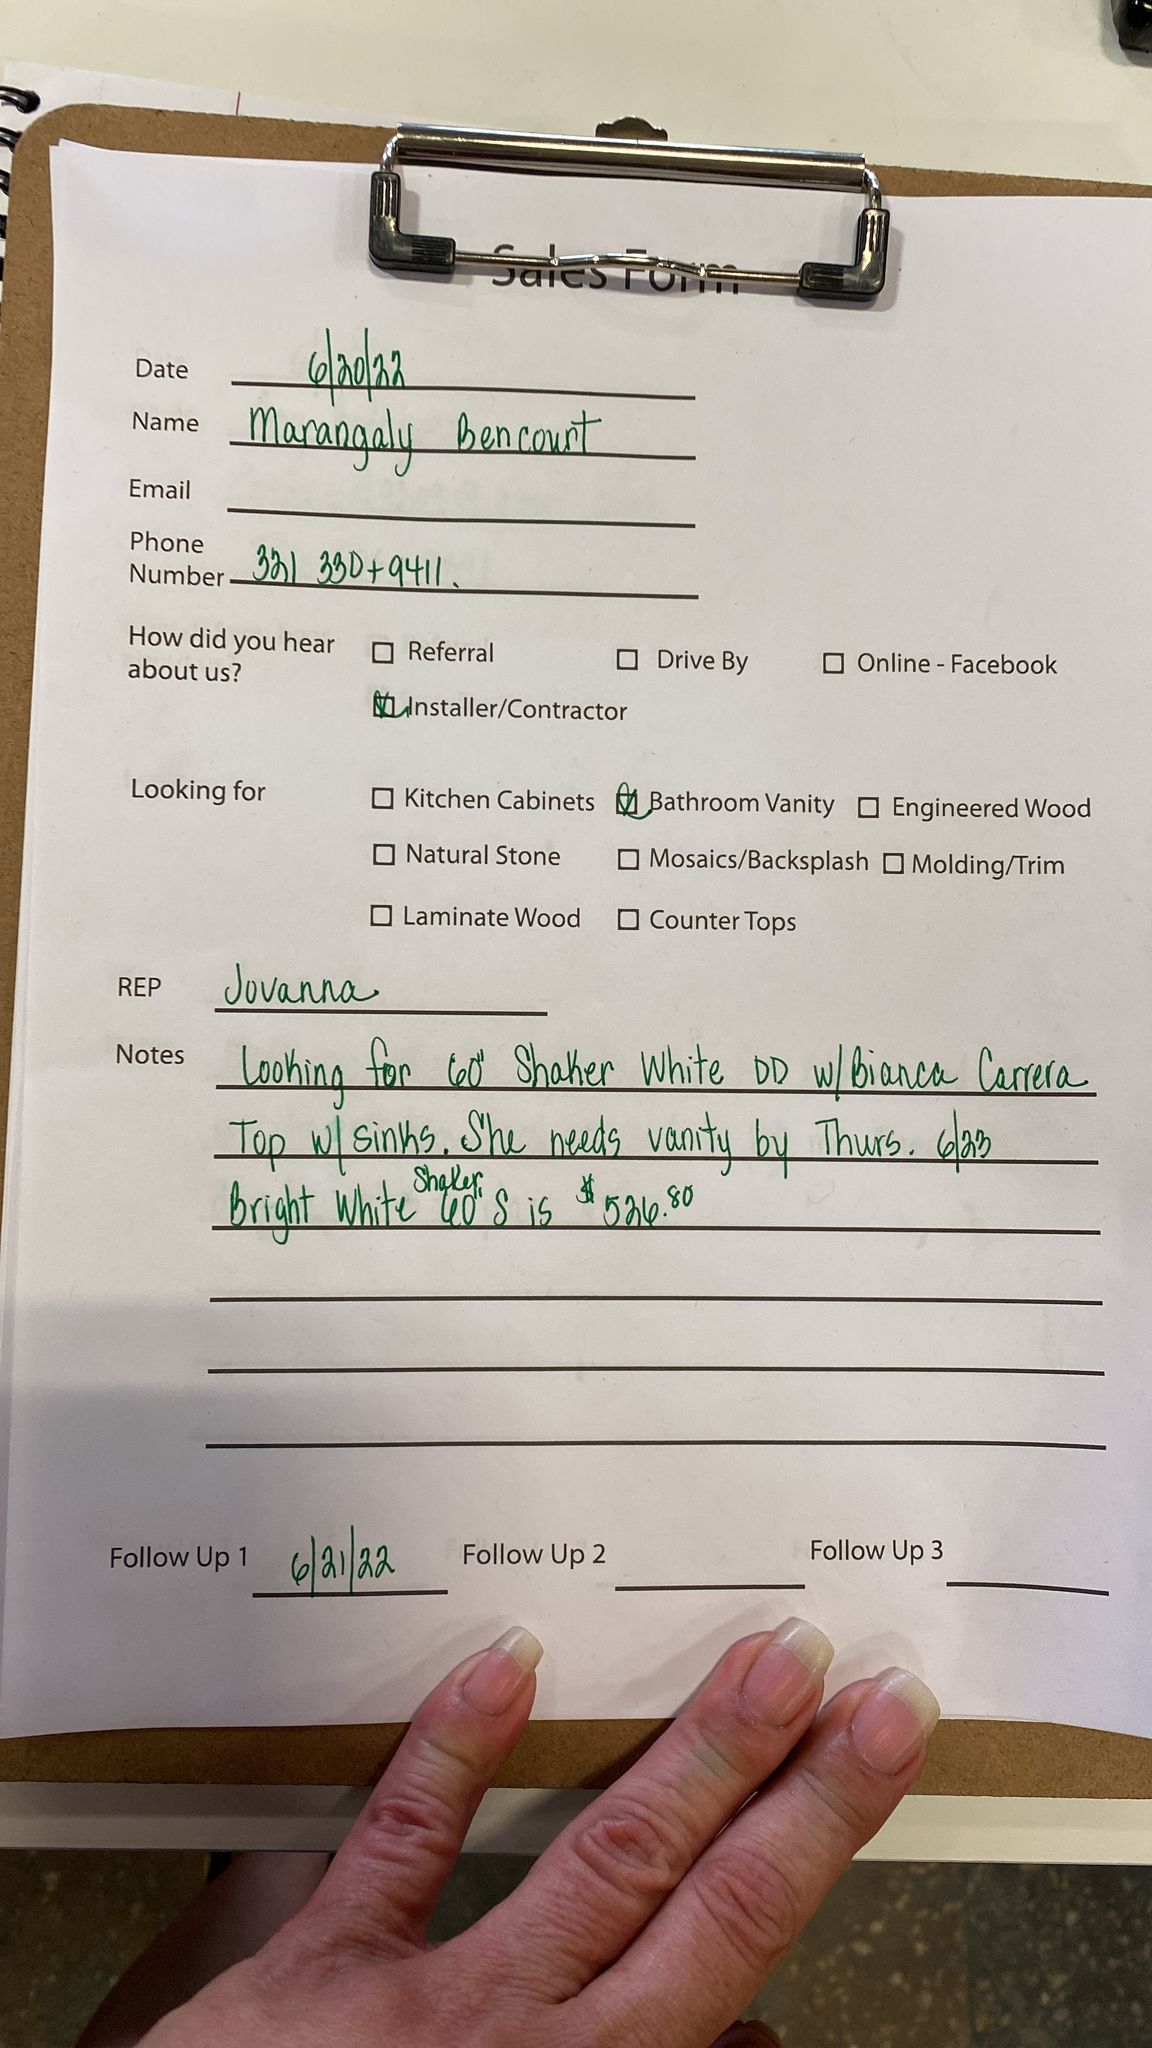 Sales Form
Date 6/20/22
Name Marangaly Bencourt
Email
Phone
Number 321 330+9411.
How did you hear
about us?
Referral Drive By Online - Facebook
Installer/Contractor
Looking for Kitchen Cabinets Bathroom Vanity Engineered Wood
Natural Stone Mosaics/Backsplash Molding/Trim
Laminate Wood Counter Tops
REP Jovanna
Notes Looking for 60" Shaker White DD w/Bianca Carrera
Top w/ sinks. She needs vanity by Thurs. 6/23
Bright White Shaker 60" S is $526.80
Follow Up 1 6/21/22 Follow Up 2 Follow Up 3